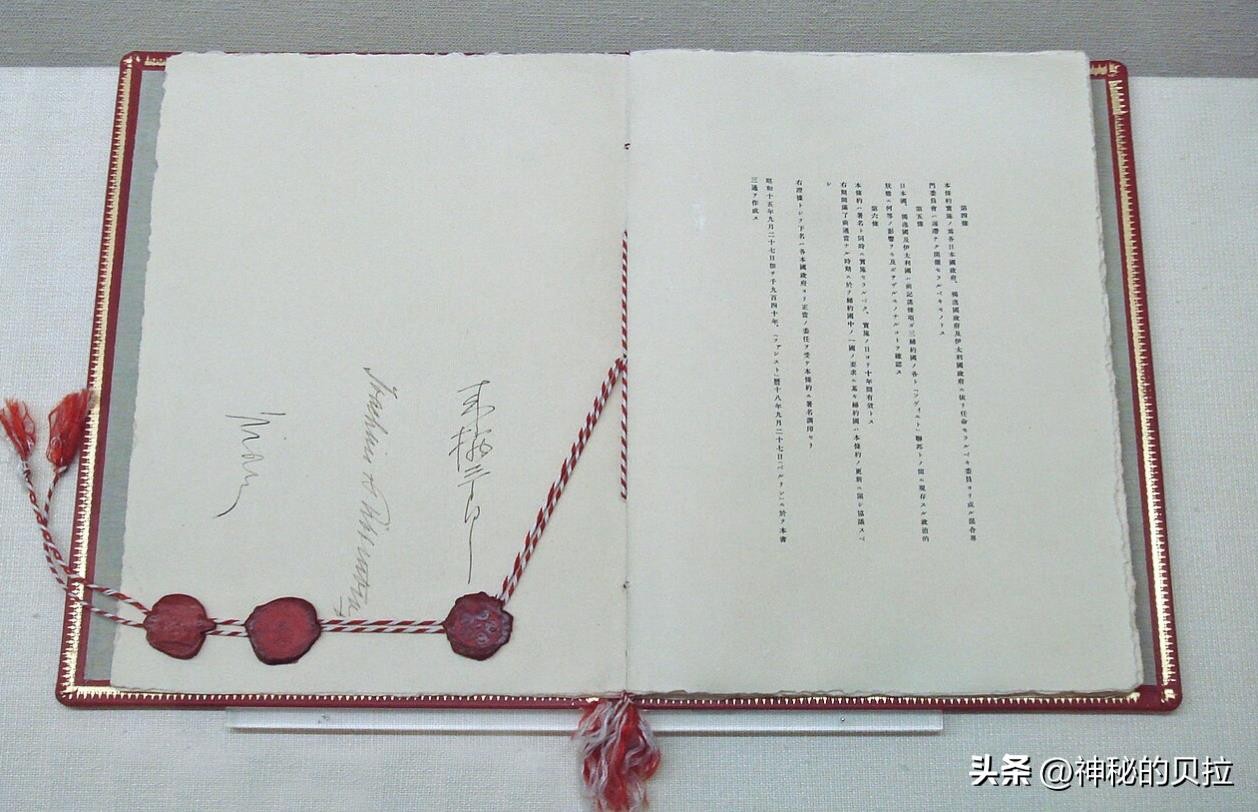 第四條
本條約實施ノ爲各日本國政府、獨逸國政府及伊太利國政府ニ依リ任命セラルベキ委員ヨリ成ル混合專
門委員會ハ遲滯ナク開催セラルベキモノトス
第五條
日本國、獨逸國及伊太利國ハ前記諸條項ガ三締約國ノ各ト「ソヴィエト」聯邦トノ間ニ現存スル政治的
狀態ニ何等ノ影響ヲモ及ボサザルモノナルコトヲ確認ス
第六條
本條約ハ署名ト同時ニ實施セラルベク、實施ノ日ヨリ十年間有效トス
右期間滿了前適當ナル時期ニ於テ締約國中ノ一國ノ要求ニ基キ締約國ハ本條約ノ更新ニ關シ協議スベ
シ
右證據トシテ下名ハ各本國政府ヨリ正當ノ委任ヲ受ケ本條約ニ署名調印セリ
昭和十五年九月二十七日卽チ千九百四十年、「ファシスト」曆十八年九月二十七日「ベルリン」ニ於テ本書
三通ヲ作成ス
来栖三郎
头条 @神秘的贝拉